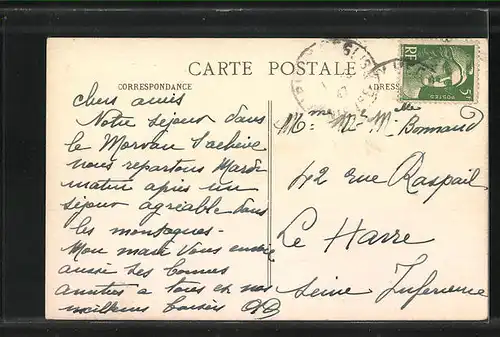 CARTE POSTALE
CORRESPONDANCE
ADRESSE
RF
5F
POSTES
chers amis
Notre séjour dans
le Morvan s'achève
nous repartons Mardi
matin après un
séjour agréable dans
les montagnes -
Mon mari vous envoie
aussi ses bonnes
amitiés a tous et nos
meilleurs baisers
Mme Mr Mlle Bonnaud
42 rue Raspail
Le Havre
Seine Inferieure